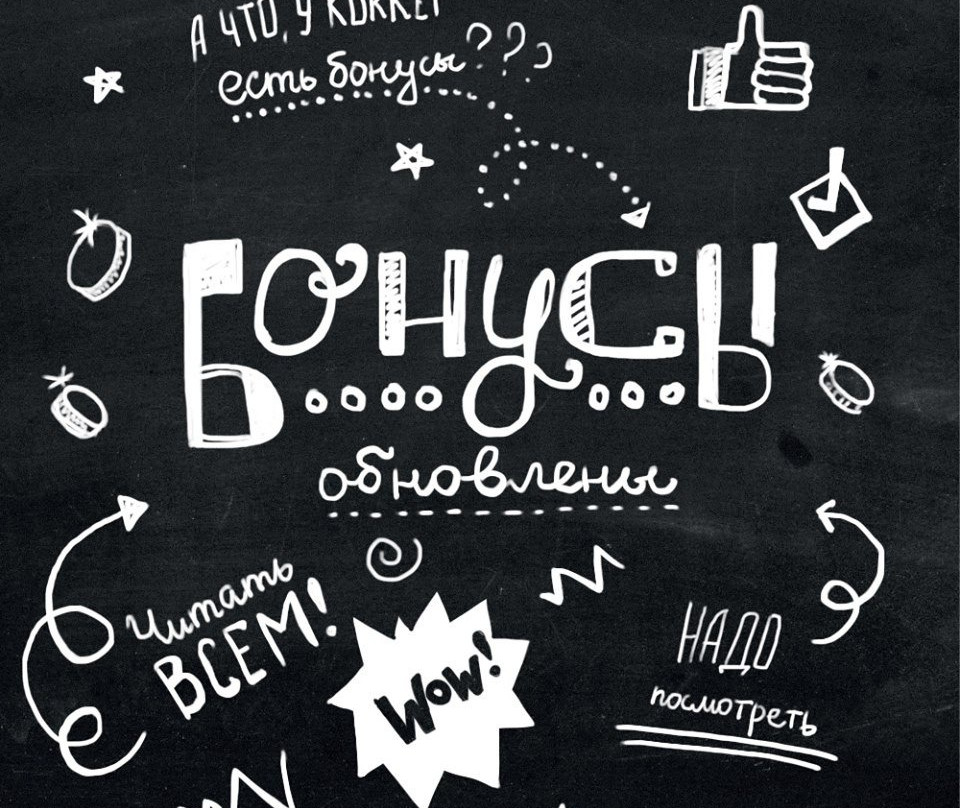 А ЧТО, У КОККЕТ
есть бонусы???
БОНУСЫ
обновлены
Читать
ВСЕМ!
Wow!
НАДО
посмотреть